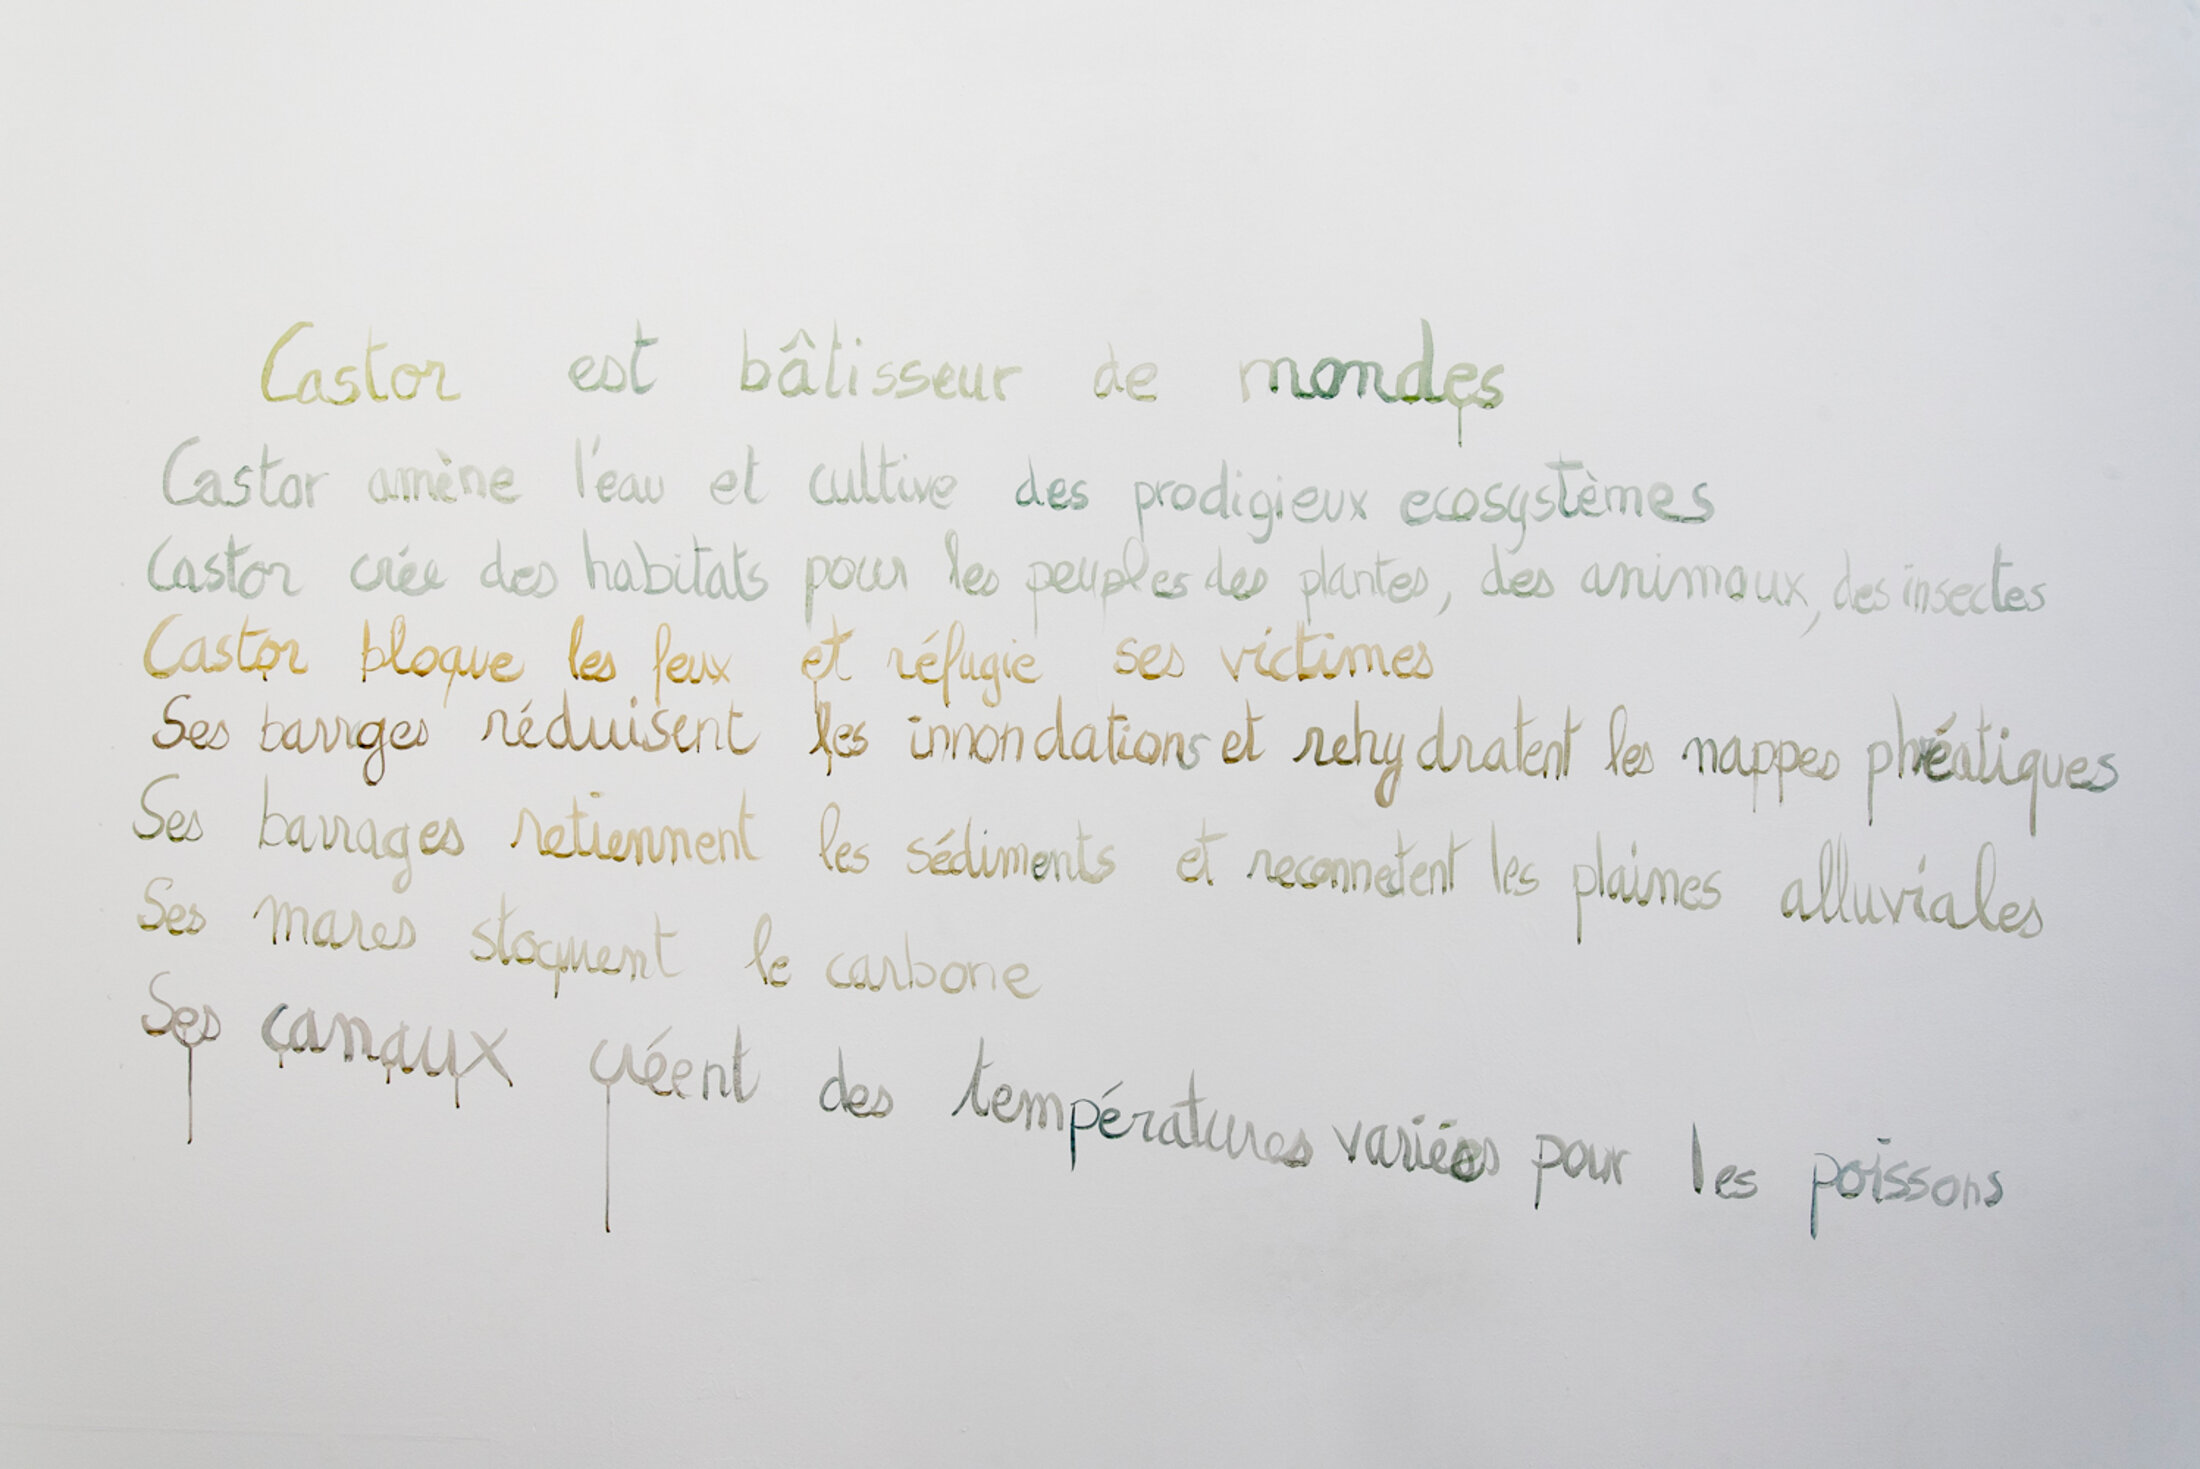 Castor est bâtisseur de mondes
Castor amène l'eau et cultive des prodigieux ecosystèmes
Castor crée des habitats pour les peuples des plantes, des animaux, des insectes
Castor bloque les feux et réfugie ses victimes
Ses barrges réduisent les innondations et rehydratent les nappes phréatiques
Ses barrages retiennent les sédiments et reconnectent les plaines alluviales
Ses mares stoquent le carbone
Ses canaux créent des températures variées pour les poissons